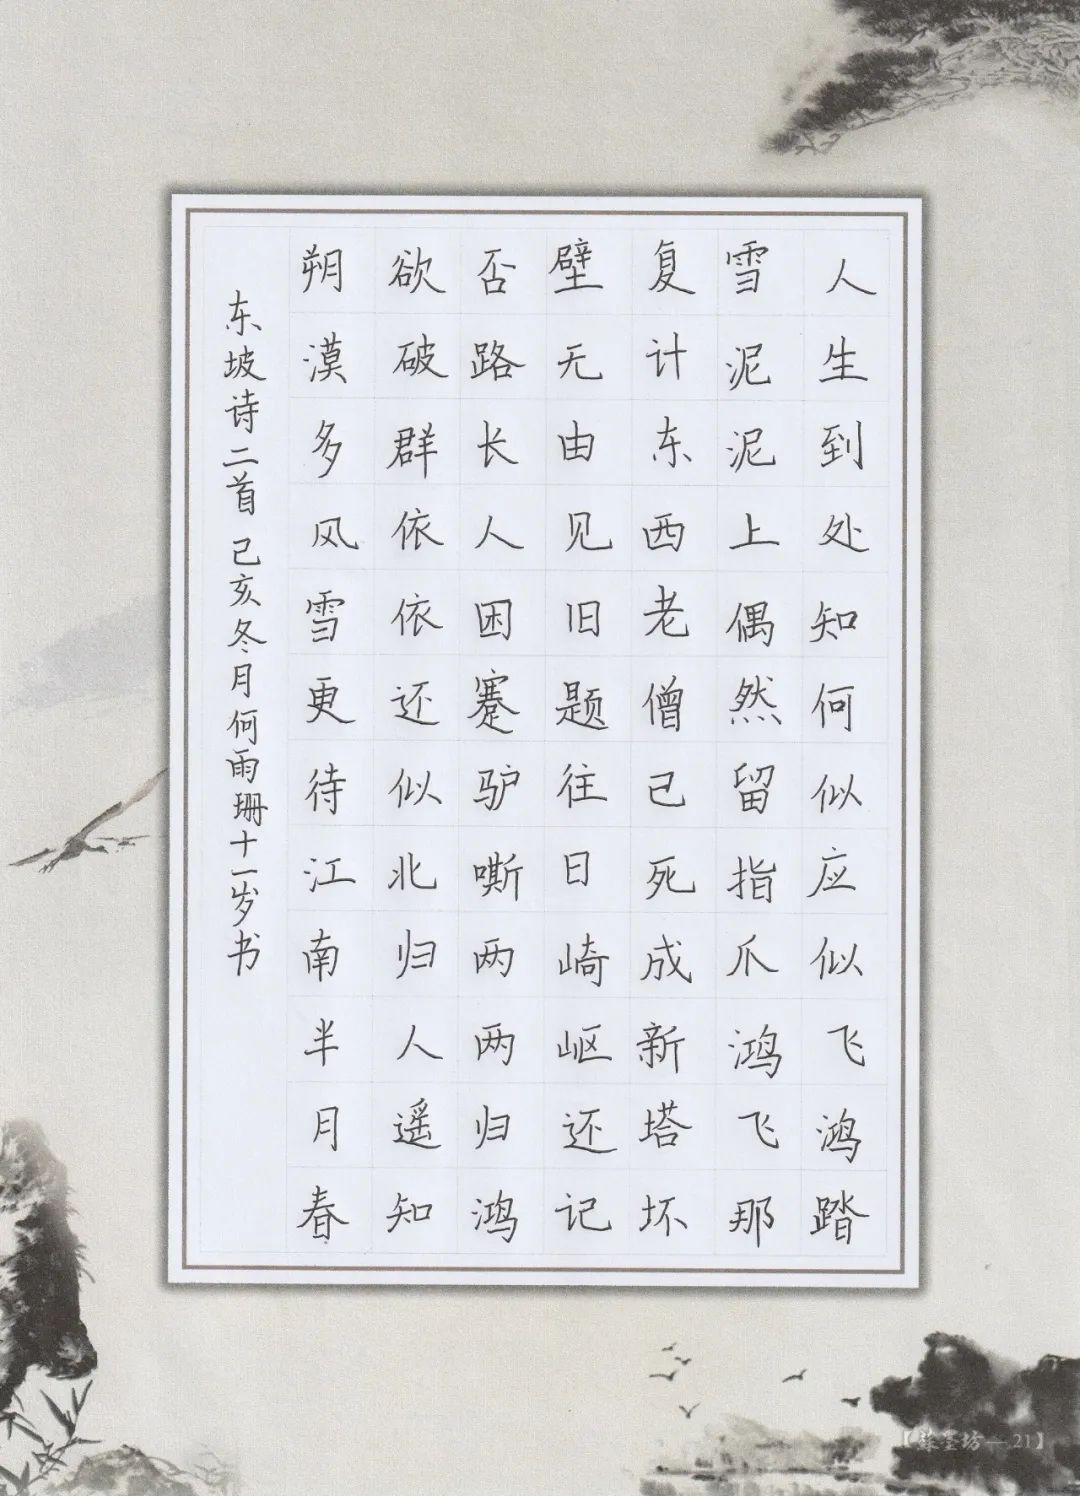 人生到处知何似应似飞鸿踏
雪泥泥上偶然留指爪鸿飞那
复计东西老僧已死成新塔坏
壁无由见旧题往日崎岖还记
否路长人困蹇驴嘶两两归鸿
欲破群依依还似北归人遥知
朔漠多风雪更待江南半月春
东坡诗二首 己亥冬月何雨珊十一岁书
墨坊—21】